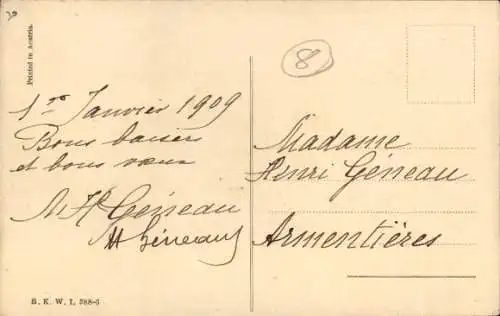 Printed in Austria.
8
1er Janvier 1909
Bons baisers
et bons vœux
M H Géneau
H Géneau
Madame
Henri Géneau
Armentières
B. K. W. I. 388-5